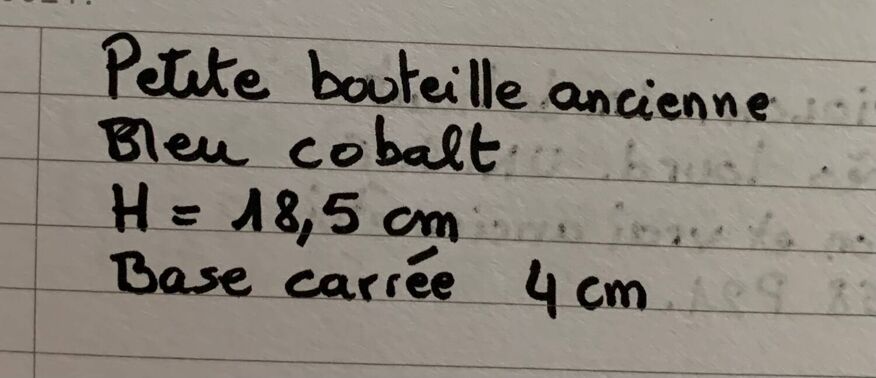 Petite bouteille ancienne
Bleu cobalt
H = 18,5 cm
Base carrée 4 cm